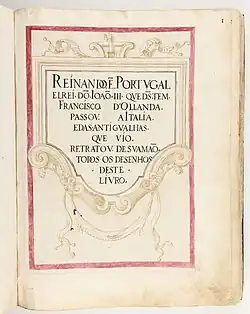 REINANDO Ē PORTVGAL
ELREI·DÕ·IOAÕ·III·QVE DS TEM
FRANCISCO D'OLLANDA
PASSOV· A ITALIA
E DAS ANTIGVALHAS
QVE VIO
RETRATOV· DE SVA MAÕ
TODOS OS DESENHOS
·DESTE·
LIVRO·